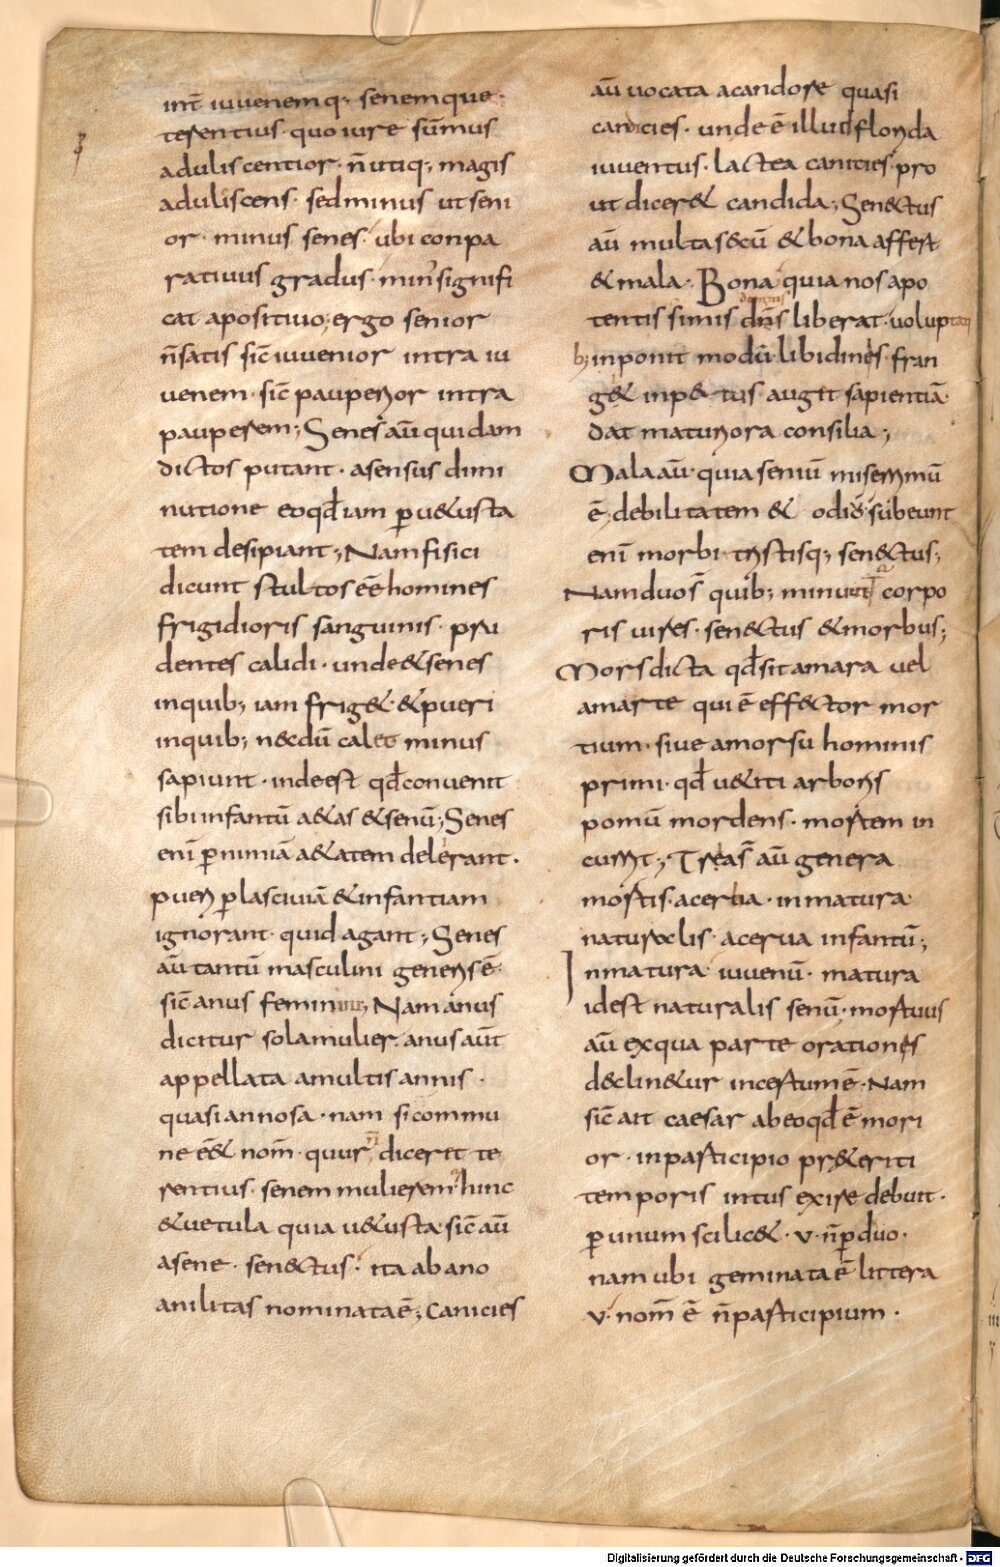 int̄ iuuenemq; senemque·
terentius· quo iure sum̄us
aduliscentior· n̄ utiq; magis
aduliscens· sed minus ut seni
or· minus senes· ubi conpa
ratiuus gradus· min' signifi
cat a positiuo; ergo senior
n̄ satis sic̄ iuuenior intra iu
uenem· sic̄ pauperior intra
pauperem; Senes aū quidam
dictos putant· a sensus dimi
nutione eo qd̄ iam p̄ uetusta
tem desipiant; Nam fisici
dicunt stultos eē homines
frigidioris sanguinis· pru
dentes calidi· unde & senes
in quib; iam friget· & pueri
in quib; necdū calet minus
sapiunt· inde est qd̄ conuenit
sibi infantū aetas & senū; Senes
enī p̄ nimiā aetatem delerant·
pueri p̄ lasciuiā & infantiam
ignorant quid agant; Senes
aū tantū masculini generis ē·
sic̄ anus feminini; Nam anus
dicitur sola mulier· anus aūt
appellata a multis annis·
quasi annosa· nam si commu
ne eēt nom̄· quur diceret te
rentius· senem mulierem· hinc
& uetula quia uetusta· sic̄ aū
a sene· senectus· ita ab ano
anilitas nominata ē; Canicies
aū uocata a candore quasi
candicies· unde ē illud florida
iuuentus· lactea canities· pro
ut diceret candida; Senectus
aū multa secū & bona affert
& mala· Bona quia nos a po
tentissimis dn̄is liberat· uoluptati
b; inponit modū libidines· fran
get inpetus· auget sapientiā
dat maturiora consilia;
Mala aū· quia seniū miserrimū
ē debilitatem & odio· subeunt
enī morbi· tristisq; senectus;
Nam duo s̄ quib; minuunt̄ corpo
ris uires· senectus & morbus;
Mors dicta qd̄ sit amara uel
a marte qui ē effector mor
tium· siue a morsu hominis
primi· qd̄ uetiti arboris
pomū mordens· mortem in
currit; Trea s̄ aū genera
mortis· acerba· inmatura·
naturalis· acerua infantū;
Inmatura iuuenū· matura
id est naturalis senū· mortuus
aū ex qua parte orationes
declinetur incertum ē· Nam
sic̄ ait caesar ab eo qd̄ ē mori
or· in participio praeteriti
temporis in tus exire debuit·
p̄ unum scilicet· v· n̄ p̄ duo·
nam ubi geminata ē littera
v· nom̄ ē n̄ participium·
Digitalisierung gefördert durch die Deutsche Forschungsgemeinschaft - DFG